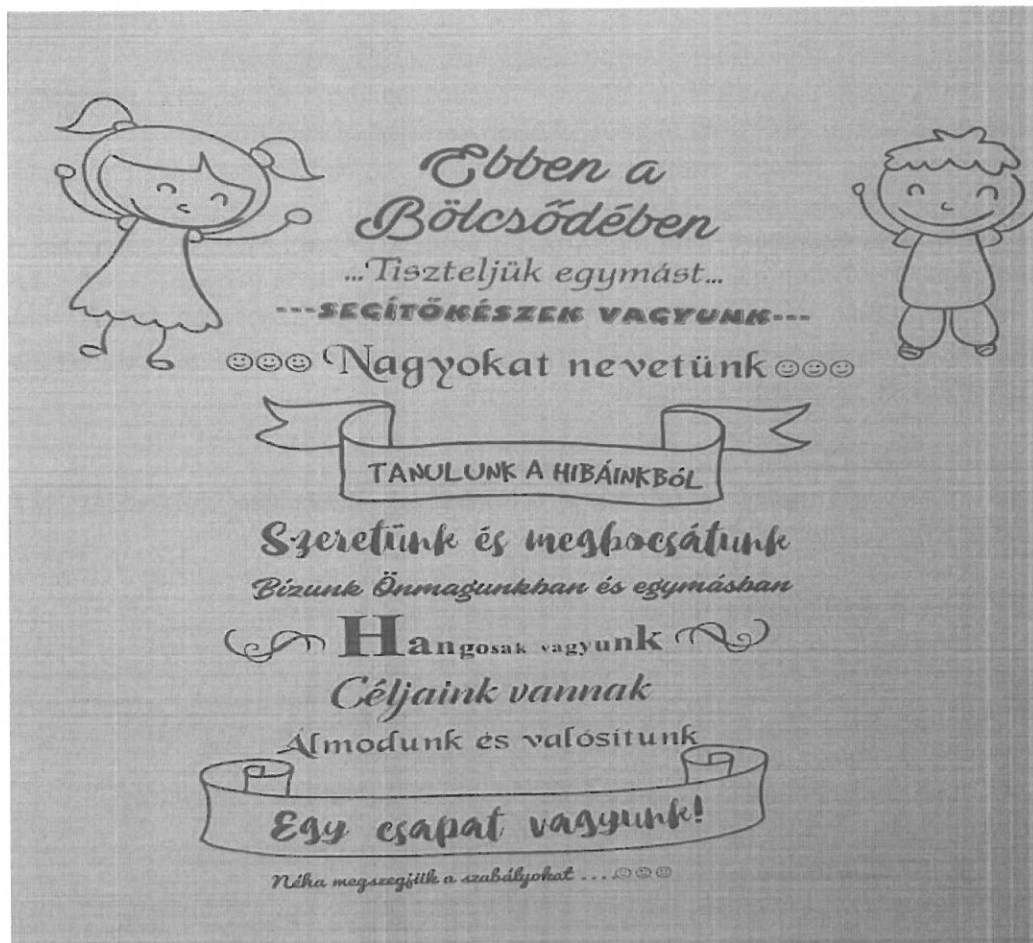 Ebben a
Bölcsődében
...Tiszteljük egymást...
---SEGÍTŐKÉSZEK VAGYUNK---
☺☺☺ Nagyokat nevetünk ☺☺☺
TANULUNK A HIBÁINKBÓL
Szeretünk és megbocsátunk
Bízunk Önmagunkban és egymásban
Hangosak vagyunk
Céljaink vannak
Álmodunk és valósítunk
Egy csapat vagyunk!
Néha megszegjük a szabályokat ....☺☺☺